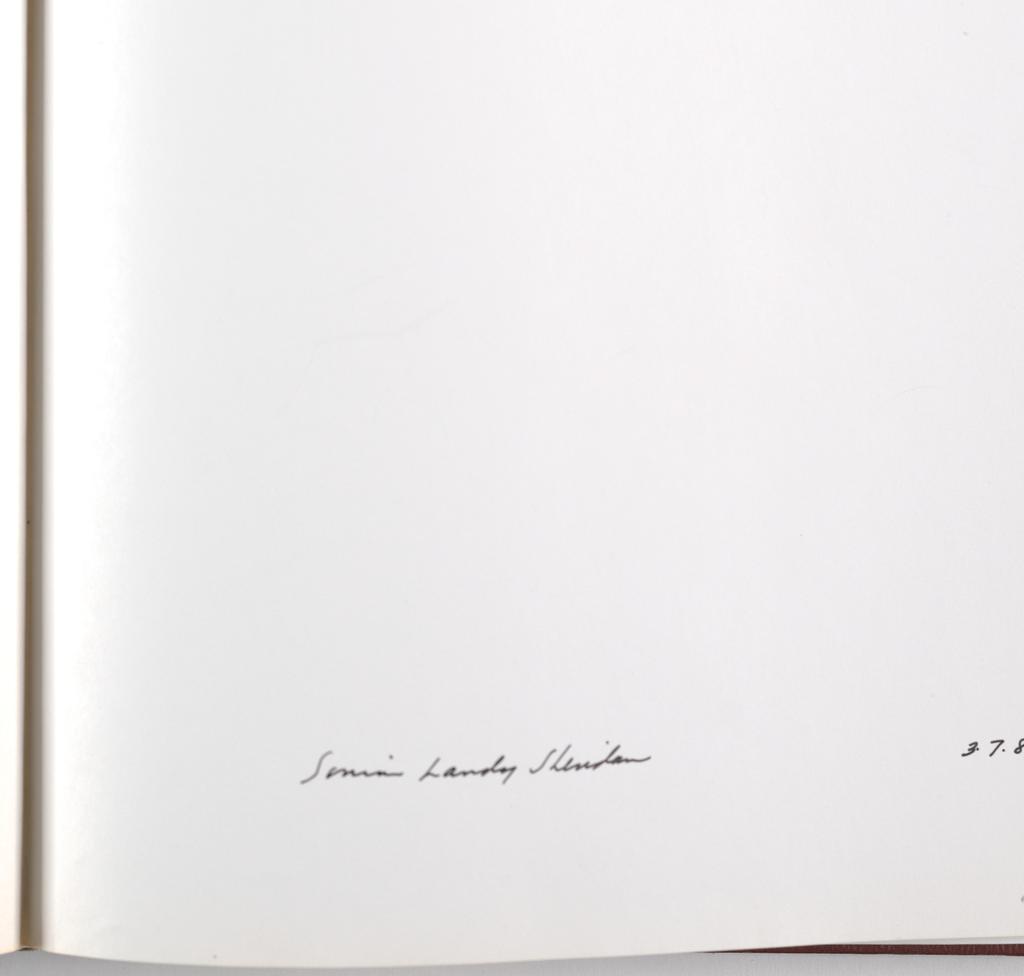 Sonia Landy Sheridan 3.7.8